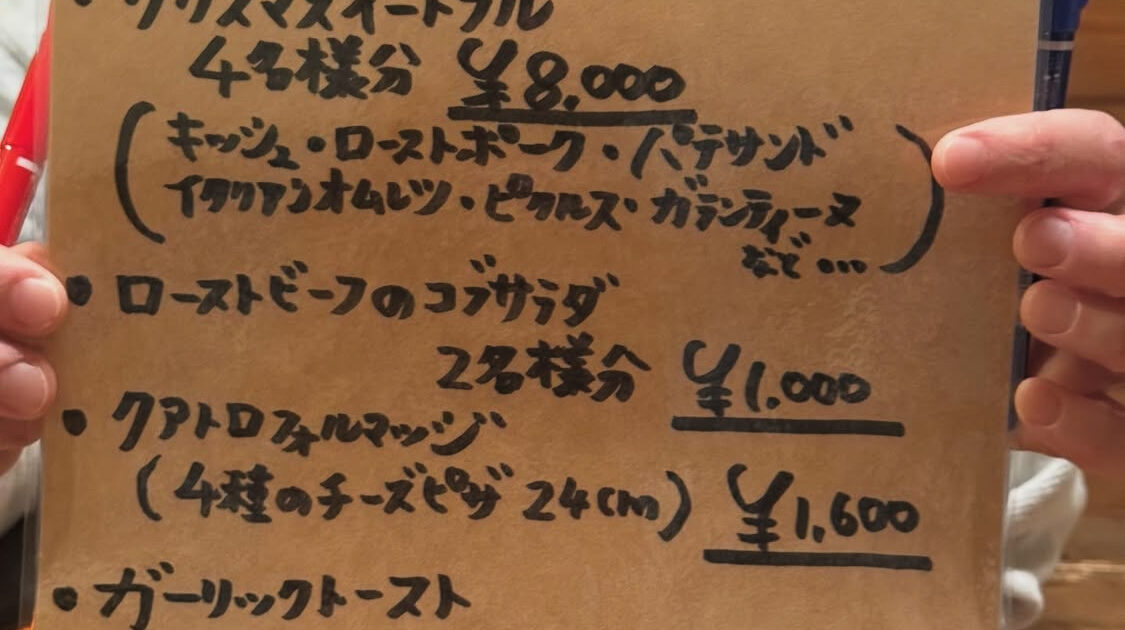 ・クリスマスオードブル
4名様分 ¥8,000
(キッシュ・ローストポーク・パテサンド
イタリアンオムレツ・ピクルス・ガランティーヌ
など…)
・ローストビーフのコブサラダ
2名様分 ¥1,000
・クアトロフォルマッジ
(4種のチーズピザ 24cm) ¥1,600
・ガーリックトースト